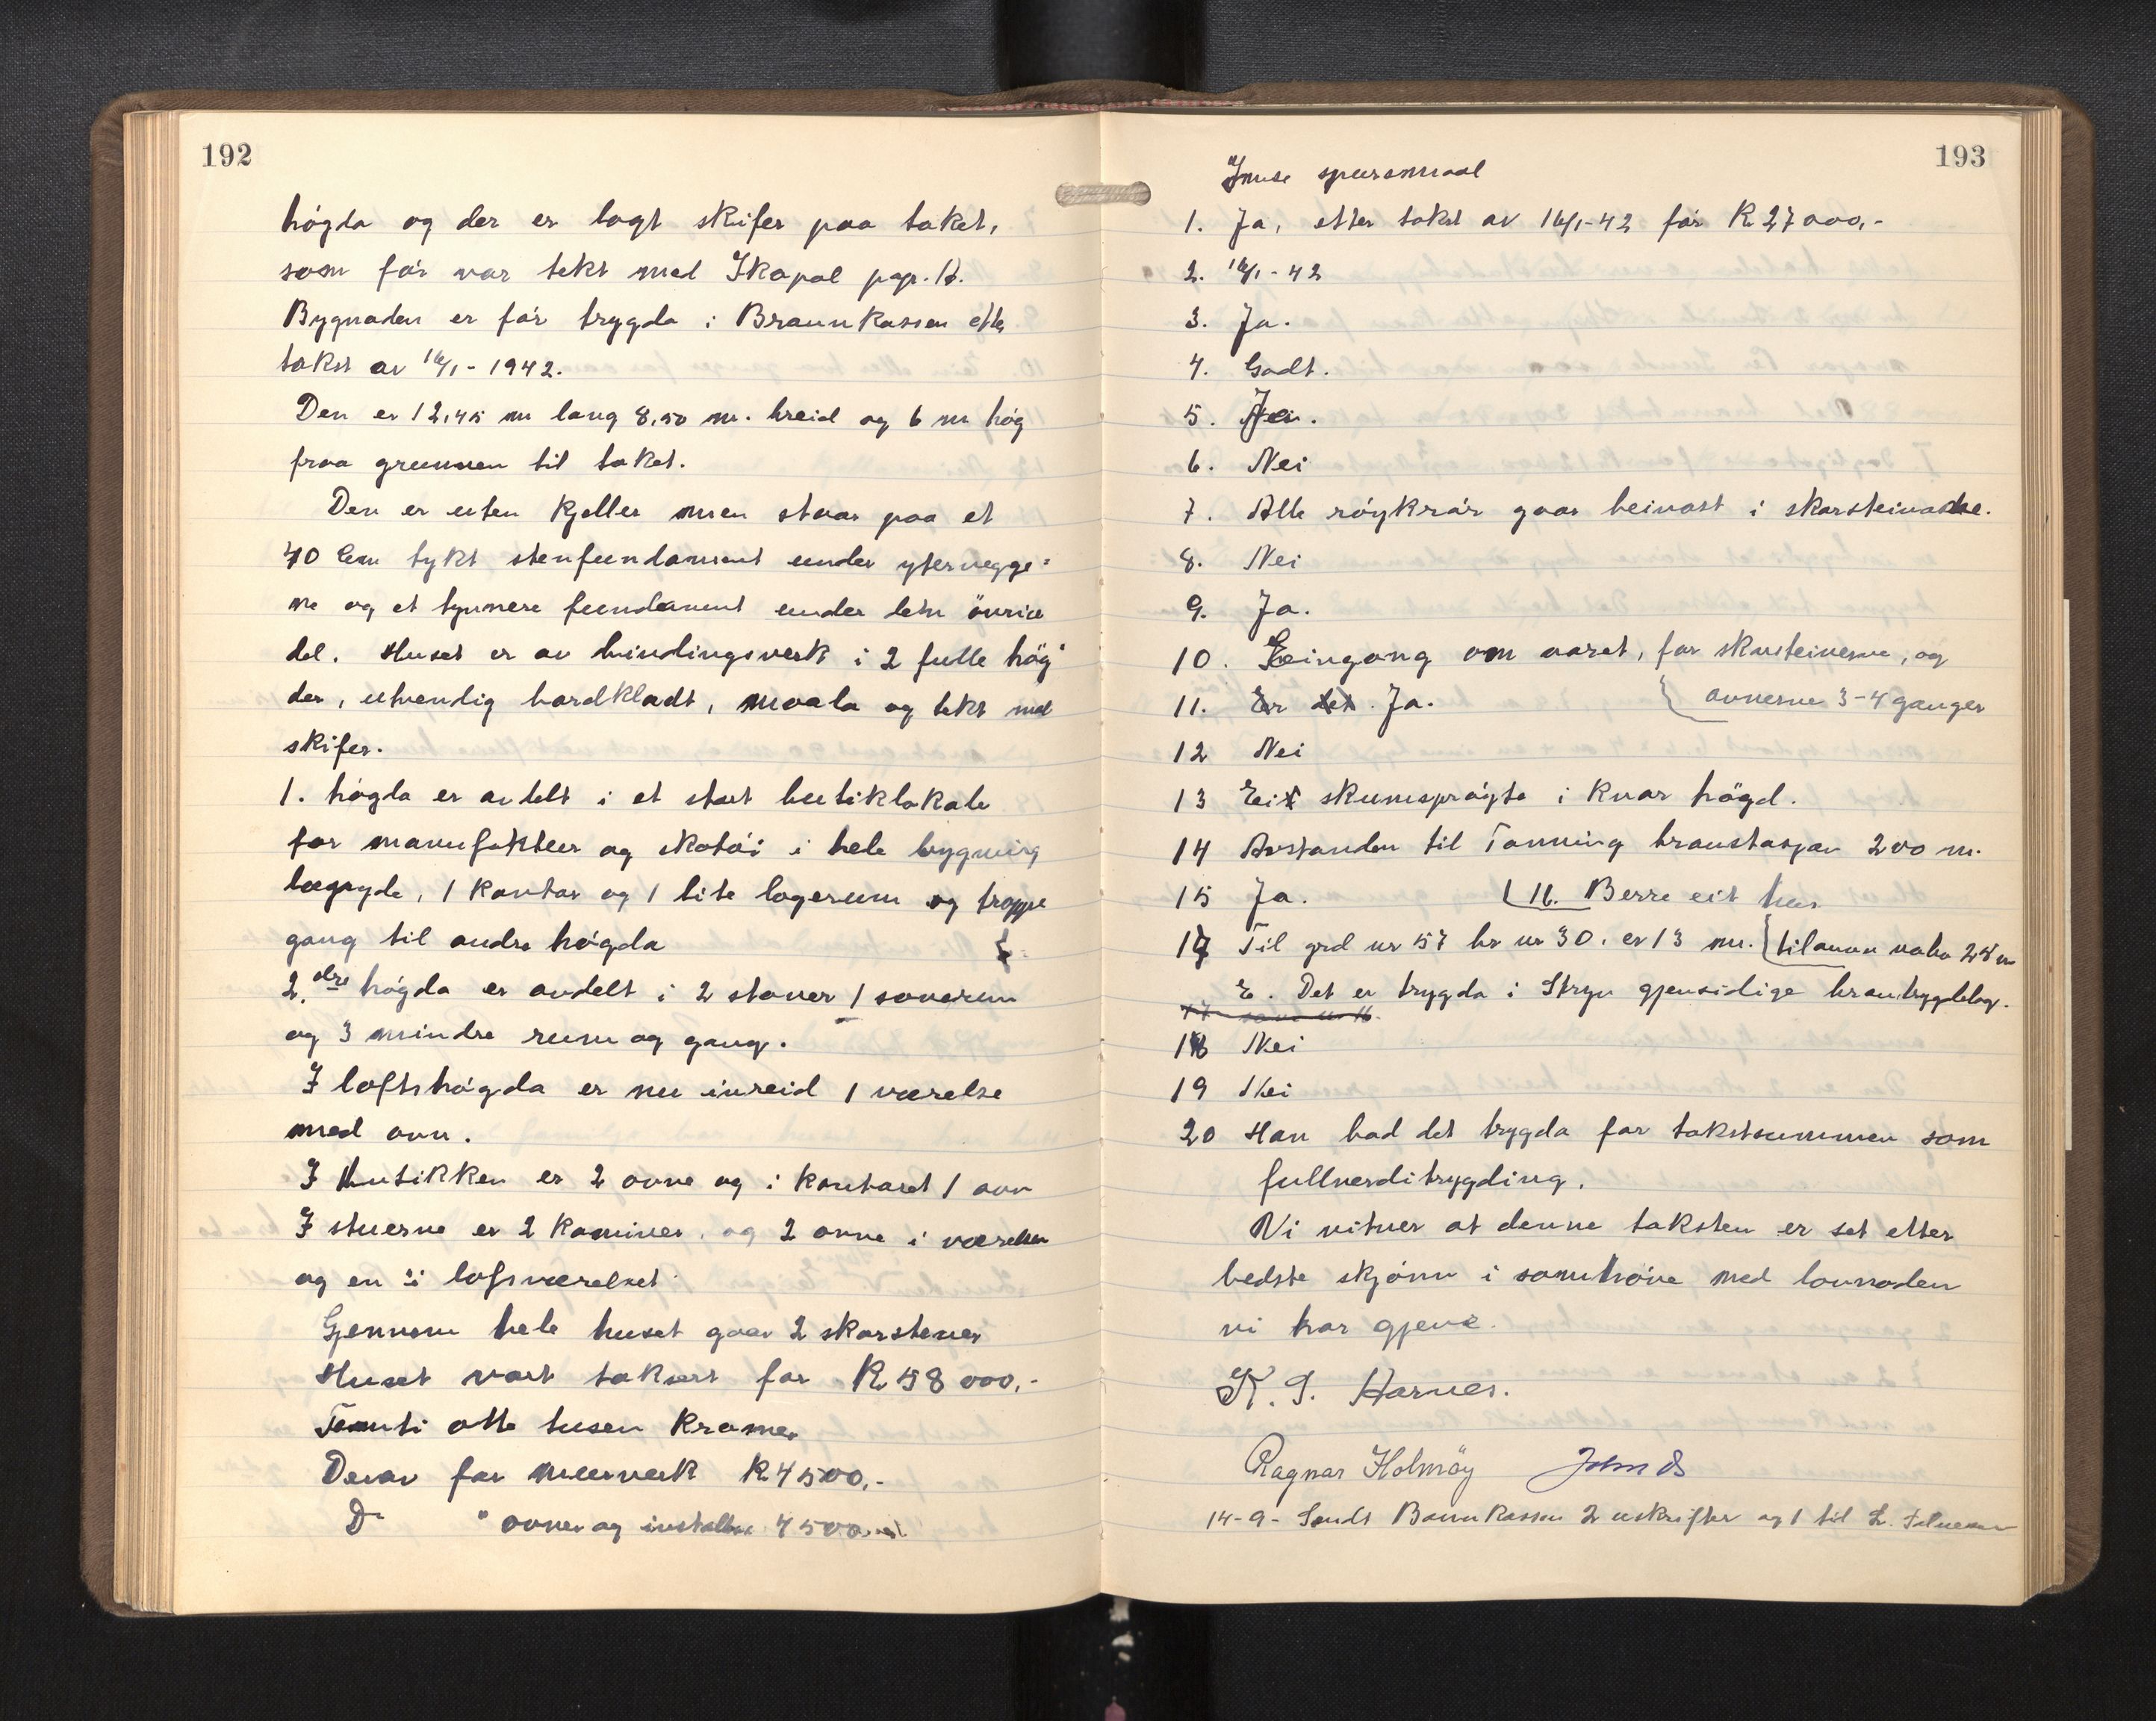 192
högda og der er lagt skifer paa taket,
som för var tekt med Ikapal pap.
Bygnaden er för trygda i Brannkassen etter
takst av 16/1-1942.
Den er 12,45 m lang 8,50 m. breid og 6 m hög
fraa grunnen til taket.
Den er uten kjeller men staar paa et
40 Cm tykt stenfundament under ytervegge=
ne og et tynnere fundament under den övrie
del. Huset er av bindingsverk i 2 fulle hög=
der, utvendig bordkladt, maala og tekt med
skifer.
1. högda er avdelt i et stort butiklokale
for manufaktur og skotöi i hele bygning
længde, 1 kontor og 1 lite lagerum og trappe
gang til andre högda
2.dre högda er avdelt i 2 stover 1 soverum
og 3 mindre rum og gang.
I loftshögda er nu inreid 1 værelse
med ovn.
I Butikken er 2 ovne og i kontoret 1 ovn
I stuerne er 2 kaminer, og 2 ovne i værelser
og en i loftsværelset
Gjennem hele huset gaar 2 skorstener
Huset vart taksert for Kr 58 000,-
Femti otte tusen Kroner
Derav for muurverk Kr 4500,-
Do " ovner og 4500
193
Ymse spursmaal
1. Ja, etter takst av 16/1-42 för Kr 27000,-
2. 16/1-42
3. Ja.
4. Godt.
5. Nei.
6. Nei
7. Alle röykrör gaar beinast i skorsteinane.
8. Nei
9. Ja.
10. Eingong om aaret, for skorsteinerne, og
11. Er det. Ja. { ovnerne 3-4 ganger
12 Nei
13 Ei skumspröyta i kvar högd.
14 Avstanden til Tonning branstasjon 200 m.
15 Ja. 16. Berre eit hus
17 Til grd nr 57 br nr 30. er 13 m. { til annan nabo 25 m
E. Det er trygda i Stryn gjensidige brantrygdelag.
18 Nei
19 Nei
20 Han bad det trygda for takstsummen som
fullverditrygding.
Vi vitner at denne taksten er set etter
bedste skjönn i samhöve med lovnaden
vi har gjeve.
K. J. Harnes.
Ragnar Holmöy
14-9- Sendt Brannkassen 2 utskrifter og 1 til L.